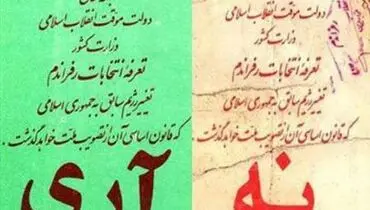 دولت موقت انقلاب اسلامی
وزارت کشور
تعرفه انتخابات رفراندم
تغییر رژیم سابق به جمهوری اسلامی
که قانون اساسی آن از تصویب ملت خواهد گذشت.
آری
دولت موقت انقلاب اسلامی
وزارت کشور
تعرفه انتخابات رفراندم
تغییر رژیم سابق به جمهوری اسلامی
که قانون اساسی آن از تصویب ملت خواهد گذشت.
نه